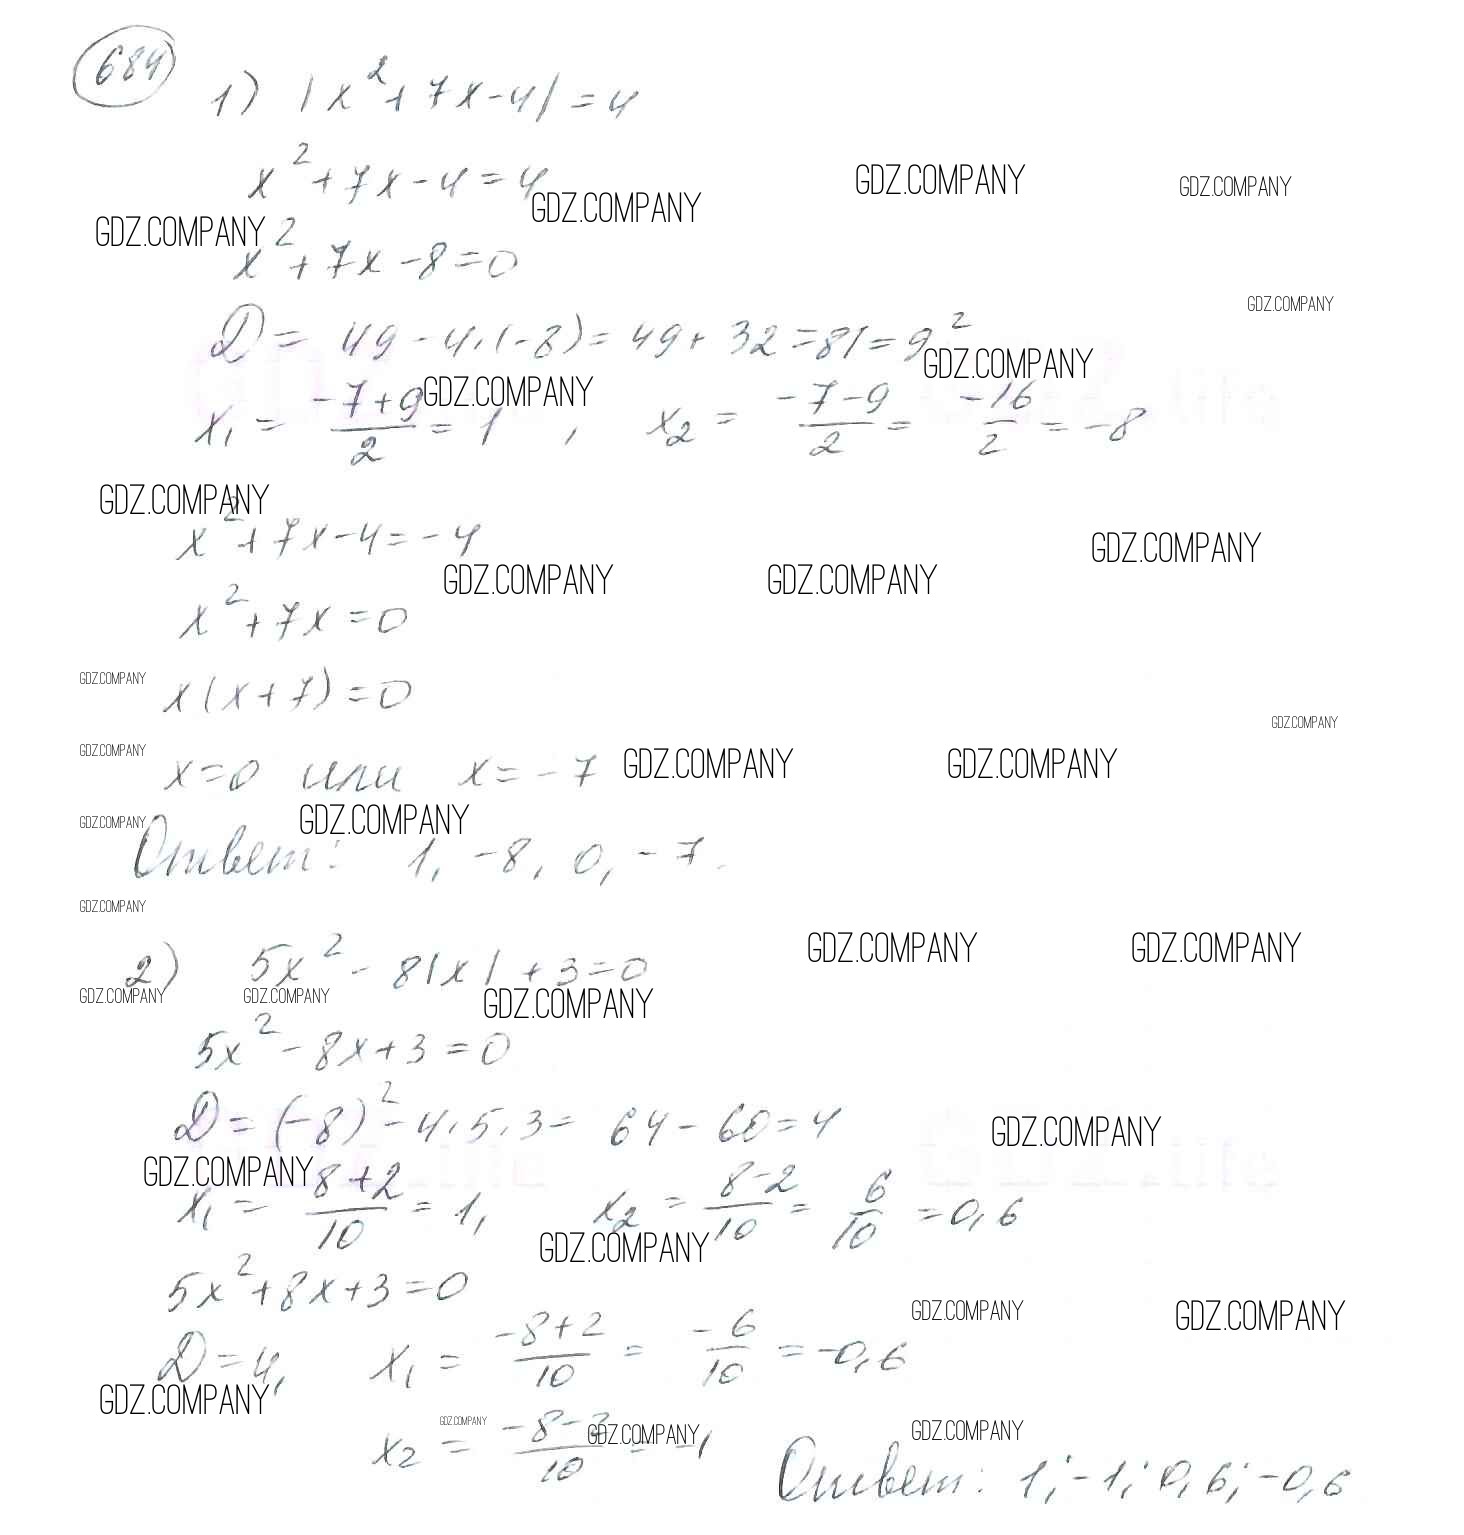 684
1) |x²+7x-4|=4
x²+7x-4=4
GDZ.COMPANY GDZ.COMPANY
GDZ.COMPANY
GDZ.COMPANY
x²+7x-8=0
GDZ.COMPANY
D= 49-4·(-8)=49+32=81=9²
GDZ.COMPANY
GDZ.COMPANY
x₁ = (-7+9)/2 = 1 , x₂ = (-7-9)/2 = -16/2 = -8
GDZ.COMPANY
x²+7x-4=-4
GDZ.COMPANY
GDZ.COMPANY GDZ.COMPANY
x²+7x=0
GDZ.COMPANY
x(x+7)=0
GDZ.COMPANY
GDZ.COMPANY
x=0 или x=-7
GDZ.COMPANY GDZ.COMPANY
GDZ.COMPANY
GDZ.COMPANY
Ответ: 1, -8, 0, -7.
GDZ.COMPANY
2) 5x²-8|x|+3=0
GDZ.COMPANY GDZ.COMPANY
GDZ.COMPANY GDZ.COMPANY GDZ.COMPANY
5x²-8x+3=0
D=(-8)²-4·5·3= 64-60=4
GDZ.COMPANY
GDZ.COMPANY
x₁ = (8+2)/10 = 1, x₂ = (8-2)/10 = 6/10 = 0,6
GDZ.COMPANY
5x²+8x+3=0
GDZ.COMPANY GDZ.COMPANY
D=4, x₁ = (-8+2)/10 = -6/10 = -0,6
GDZ.COMPANY
x₂ = (-8-2)/10 = -1
GDZ.COMPANY GDZ.COMPANY GDZ.COMPANY
Ответ: 1; -1; 0,6; -0,6